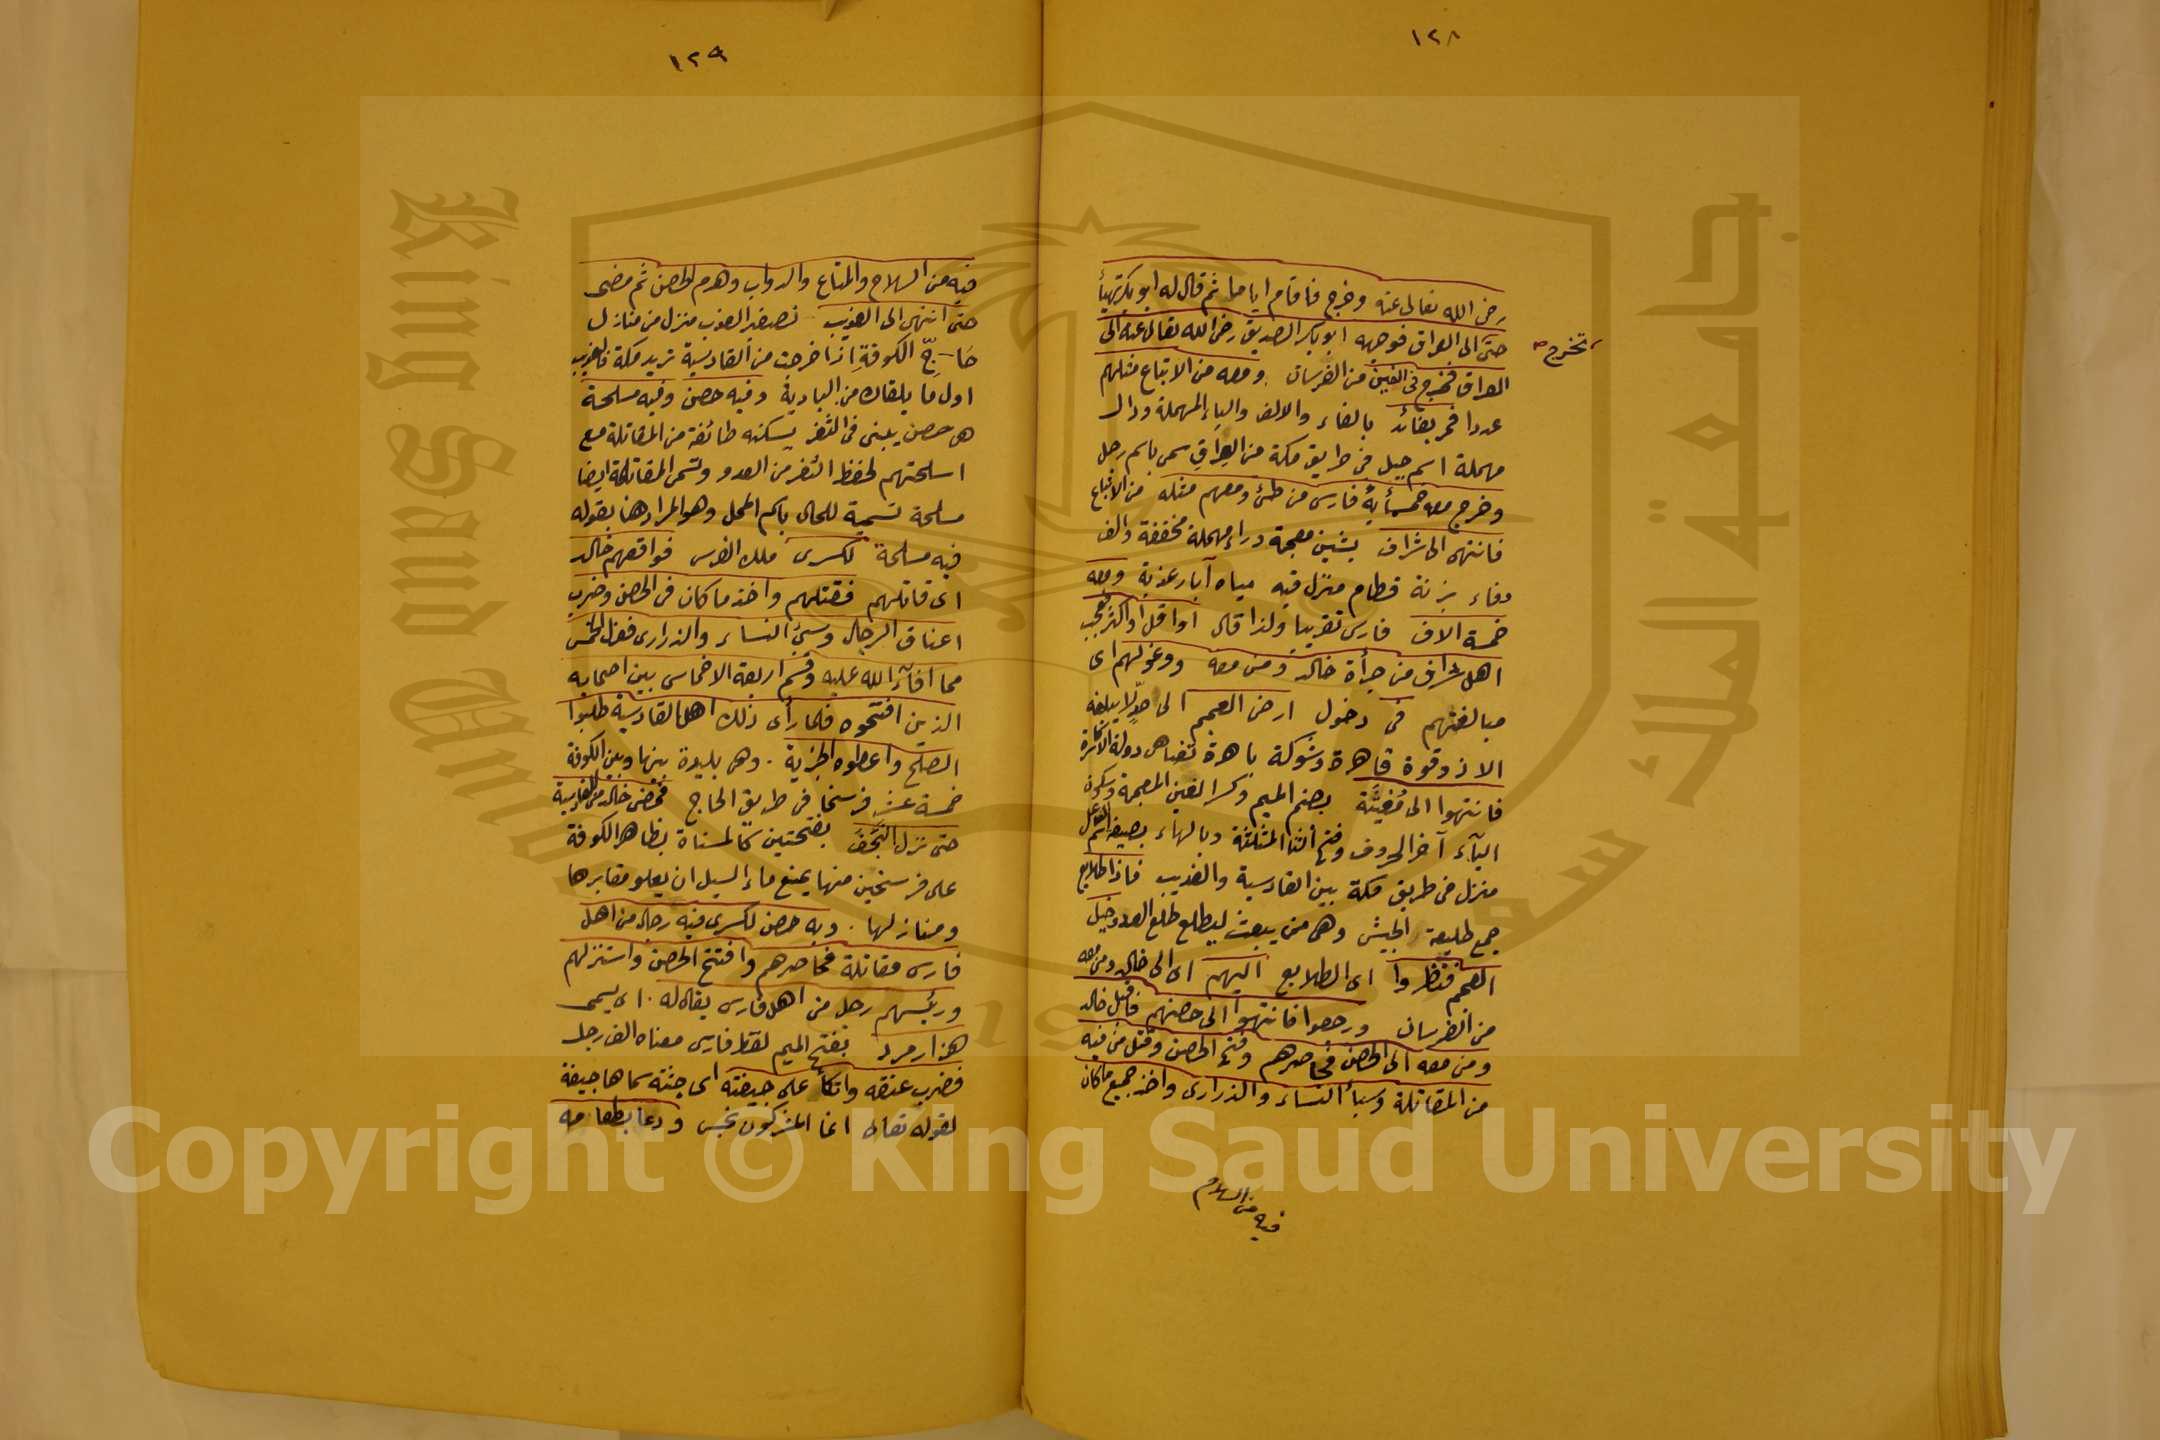 ١٢٨
رضى الله تعالى عنه وخرج فاقام اياما ثم قال له ابو بكر تهيأ
حتى الى العراق فوجهه ابو بكر الصديق رضى الله تعالى عنه الى
تخرج صح
العراق فخرج فى الفين من الفرسان ومعه من الاتباع مثلهم
عددا فمر بفائد بالفاء والالف والياء المهملة ودال
مهملة اسم جبل فى طريق مكة من العراق سمى باسم رجل
وخرج معه خمسمأية فارس من طئ ومعهم مثله من الاتباع
فانتهى الى شراف بشين معجمة وراء مهملة مخففة والف
وفاء بزنة قطام منزل فيه مياه آبار عذبة ومعه
خمسة الاف فارس تقريبا ولذا قال او اقل او اكثر فعجب
اهل شراف من جرأة خالد ومن معه ووغولهم اى
مبالغتهم فى دخول ارض العجم الى حد لا يبلغه
الا ذو قوة قاهرة وشوكة باهرة تضاهى دولة الاكاسرة
فانتهوا الى مُغيثَة بضم الميم وكسر الغين المعجمة وسكون
الياء آخر الحروف وفتح الثا المثلثة وبالهاء بصيغة اسم الفاعل
منزل فى طريق مكة بين القادسية والعذيب فاذا طلايع
جمع طليعة الجيش وهى من يبعث ليطلع طلع العدو خيل
العجم فنظروا اى الطلايع اليهم اى الى خالد ومن معه
من الفرسان ورجعوا فانتهوا الى حصنهم فاقبل خالد
ومن معه الى الحصن فحاصرهم وفتح الحصن وقتل من فيه
من المقاتلة وسبأ النساء والذرارى واخذ جميع ما كان
فيه من السلاح
١٢٩
فيه من السلاح والمتاع والدواب وهدم الحصن ثم مضى
حتى انتهى الى العذيب تصغير العذب منزل من منازل
حَاجّ الكوفةِ اذا خرجت من القادسية تريد مكة فالعذيب
اول ما يلقاك من البادية وفيه حصن وفيه مسلحة
هى حصن يبنى فى الثغر يسكنه طائفة من المقاتلة مع
اسلحتهم لحفظ الثغر من العدو وتسمى المقاتلة ايضا
مسلحة تسمية للحال باسم المحل وهو المراد هنا بقوله
فيه مسلحة لكسرى ملك الفرس فواقعهم خالد
اى قاتلهم فقتلهم واخذ ما كان فى الحصن وضرب
اعناق الرجال وسبى النساء والذرارى فعزل الخمس
مما افآء الله عليه وقسم اربعة الاخماس بين اصحابه
الذين افتتحوه فلما رأى ذلك اهل القادسية طلبوا
الصلح واعطوه الجزية وهى بليدة بينها وبين الكوفة
خمسة عشر فرسخا فى طريق الحاج فمضى خالد من القادسية
حتى نزل النَّجَفَ بفتحتين كالمسناة بظاهر الكوفة
على فرسخين منها يمنع ماء السيل ان يعلو مقابرها
ومنازلها وبه حصن لكسرى فيه رجال من اهل
فارس مقاتلة فحاصرهم وافتتح الحصن واستنزلهم
ورئيسهم رجل من اهل فارس يقال له اى يسمى
هزارمرد بفتح الميم لفظ فارسى معناه الف رجل
فضرب عنقه واتكأ على جيفته اى جثته سماها جيفة
لقوله تعالى انما المشركون نجس ودعا بطعامه